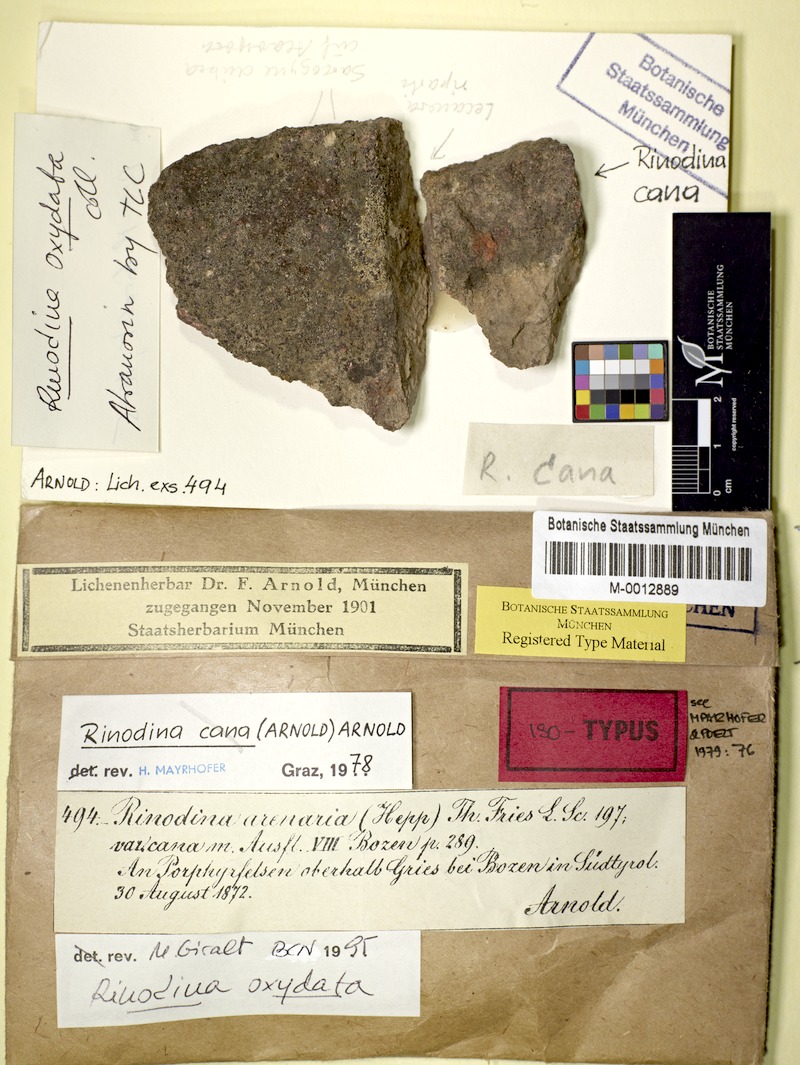 Sarcogyne dubia
auf
Lecanora
Botanische
Staatssammlung
München
Rinodina
cana
Rinodina oxydata
coll.
Atranorin by TLC
BOTANISCHE
STAATSSAMMLUNG
MÜNCHEN
copyright reserved
0 1 2
cm
R. cana
ARNOLD: Lich. exs. 494
Botanische Staatssammlung München
M-0012889
Lichenenherbar Dr. F. Arnold, München
zugegangen November 1901
Staatsherbarium München
BOTANISCHE STAATSSAMMLUNG
MÜNCHEN
Registered Type Material
Rinodina cana (ARNOLD) ARNOLD
det. rev. H. MAYRHOFER Graz, 1978
ISO-TYPUS
see
MAYRHOFER
& POELT
1979: 76
494. Rinodina arenaria (Hepp) Th. Fries L. Sc. 197;
var. cana m. Ausfl. VIII Bozen p. 289.
An Porphyrfelsen oberhalb Gries bei Bozen in Südtyrol.
30 August 1872.
Arnold.
det. rev. M. Giralt BCN 1995
Rinodina oxydata